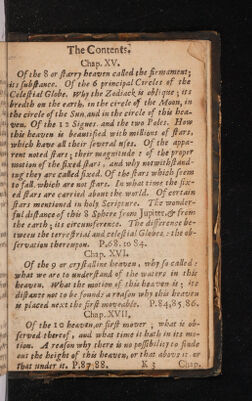 The Contents.
Chap. XV.
Of the 8 or starry heaven called the firmament;
its substance. Of the 6 principal Circles of the
Celestial Globe. Why the Zodiack is oblique; its
bredth on the earth, in the circle of the Moon, in
the circle of the Sun, and in the circle of this hea-
ven. Of the 12 Signes, and the two Poles. How
this heaven is beautified with millions of stars,
which have all their several uses. Of the appa-
rent noted stars; their magnitude: of the proper
motion of the fixed stars, and why notwithstand-
ing they are called fixed. Of the stars which seem
to fall, which are not stars. In what time the fix-
ed stars are carried about the world. Of certain
stars mentioned in holy Scripture. The wonder-
ful distance of this 8 Sphere from Jupiter, & from
the earth; its circumference. The difference be-
tween the terrestrial and celestial Globes: the ob-
servation thereupon. P.68. to 84.
Chap. XVI.
Of the 9 or crystalline heaven, why so called:
what we are to understand of the waters in this
heaven. What the motion of this heaven is; its
distance not to be found: a reason why this heaven
is placed next the first moveable. P.84,85,86.
Chap. XVII.
Of the 10 heaven, or first mover; what is ob-
served thereof, and what time it hath in its mo-
tion. A reason why there is no possibility to finde
out the height of this heaven, or that above it or
that under it. P.87,88. K 3 Chap.